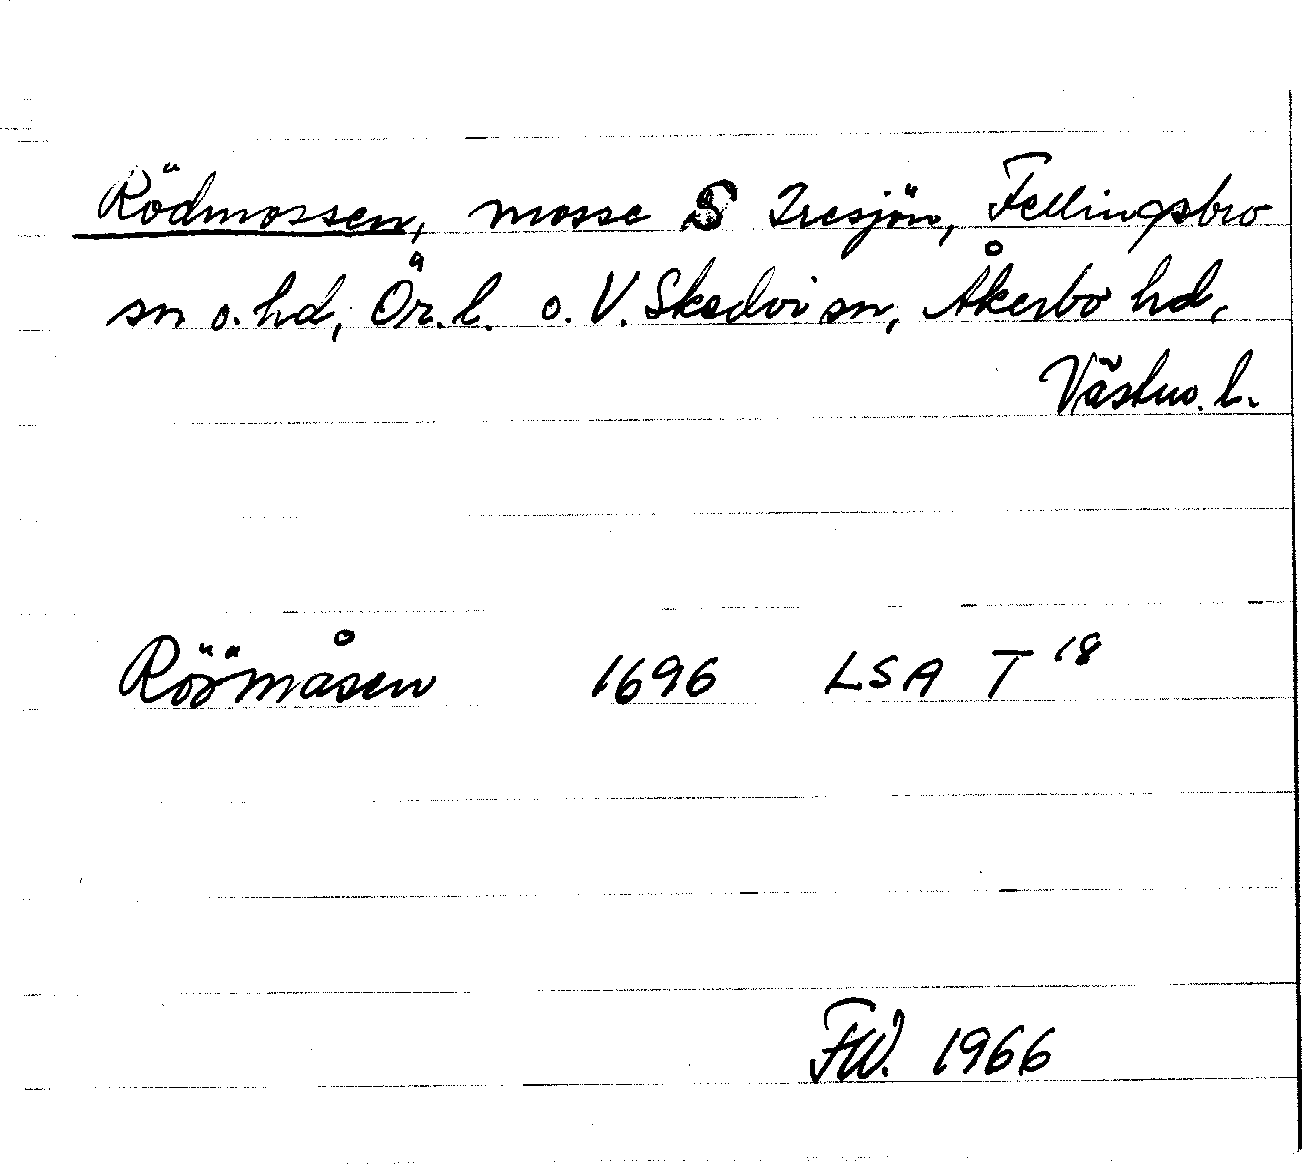 Rödmossen, mosse S Tresjön, Fellingsbro
sn o. hd, Ör. l. o. V. Skedvi sn, Åkerbo hd,
Västm. l.
Röömåsen 1696 LSA T 18
FW. 1966